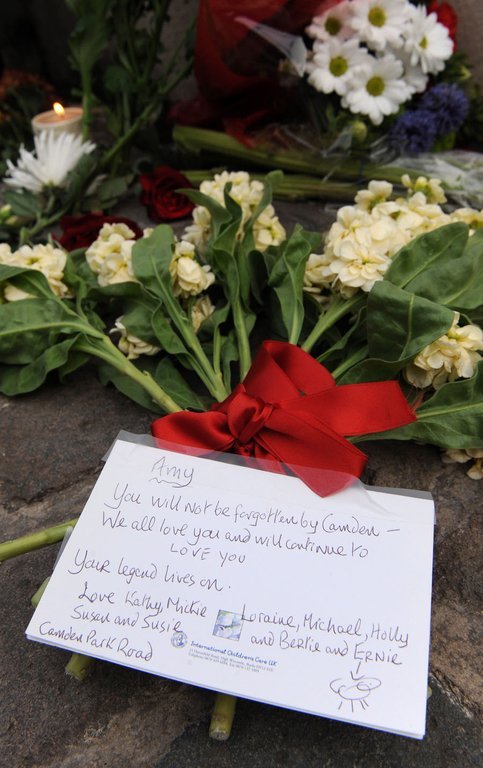 Amy
You will not be forgotten by Camden –
We all love you and will continue to
LOVE YOU
Your legend lives on.
Love Kathy, Mickie
Susan and Susie
Camden Park Road
Loraine, Michael, Holly
and Bertie and ERNIE
International Children's Care UK